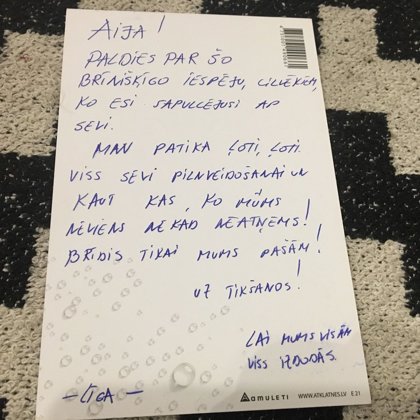 AIJA!
PALDIES PAR ŠO
BRĪNIŠĶĪGO IESPĒJU, CILVĒKIEM,
KO ESI SAPULCĒJUSI AP
SEVI.
MAN PATIKA ĻOTI, ĻOTI.
VISS SEVI PILNVEIDOŠANAI UN
KAUT KAS, KO MUMS
NEVIENS NEKAD NEATŅEMS!
BRĪDIS TIKAI MUMS PAŠĀM!
UZ TIKŠANOS!
LAI MUMS VISĀM
VISS IZDODĀS.
–LĪGA–
AMULETI WWW.ATKLATNES.LV E 21